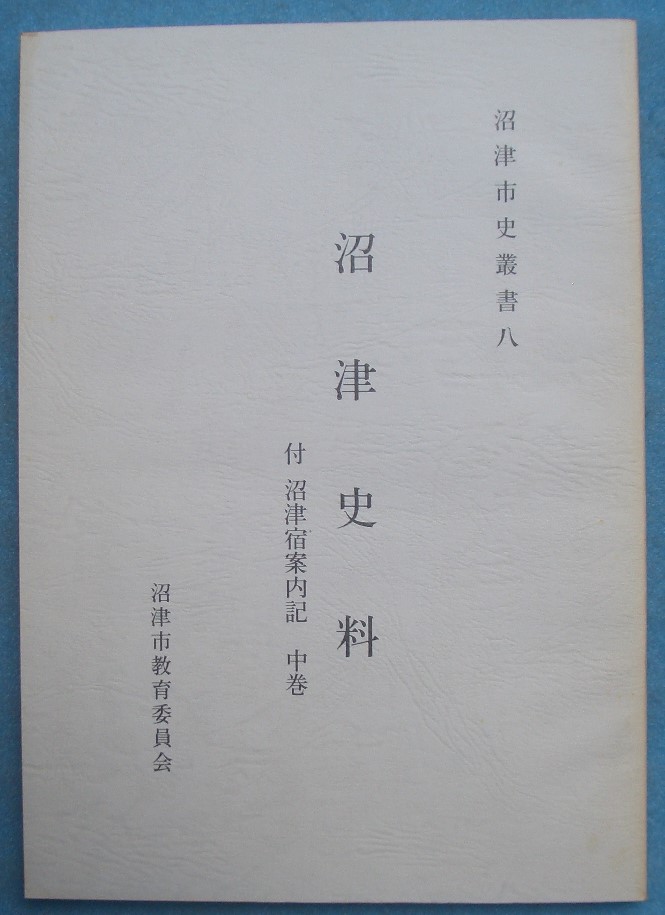 沼津市史叢書八
沼津史料
付 沼津宿案内記 中巻
沼津市教育委員会